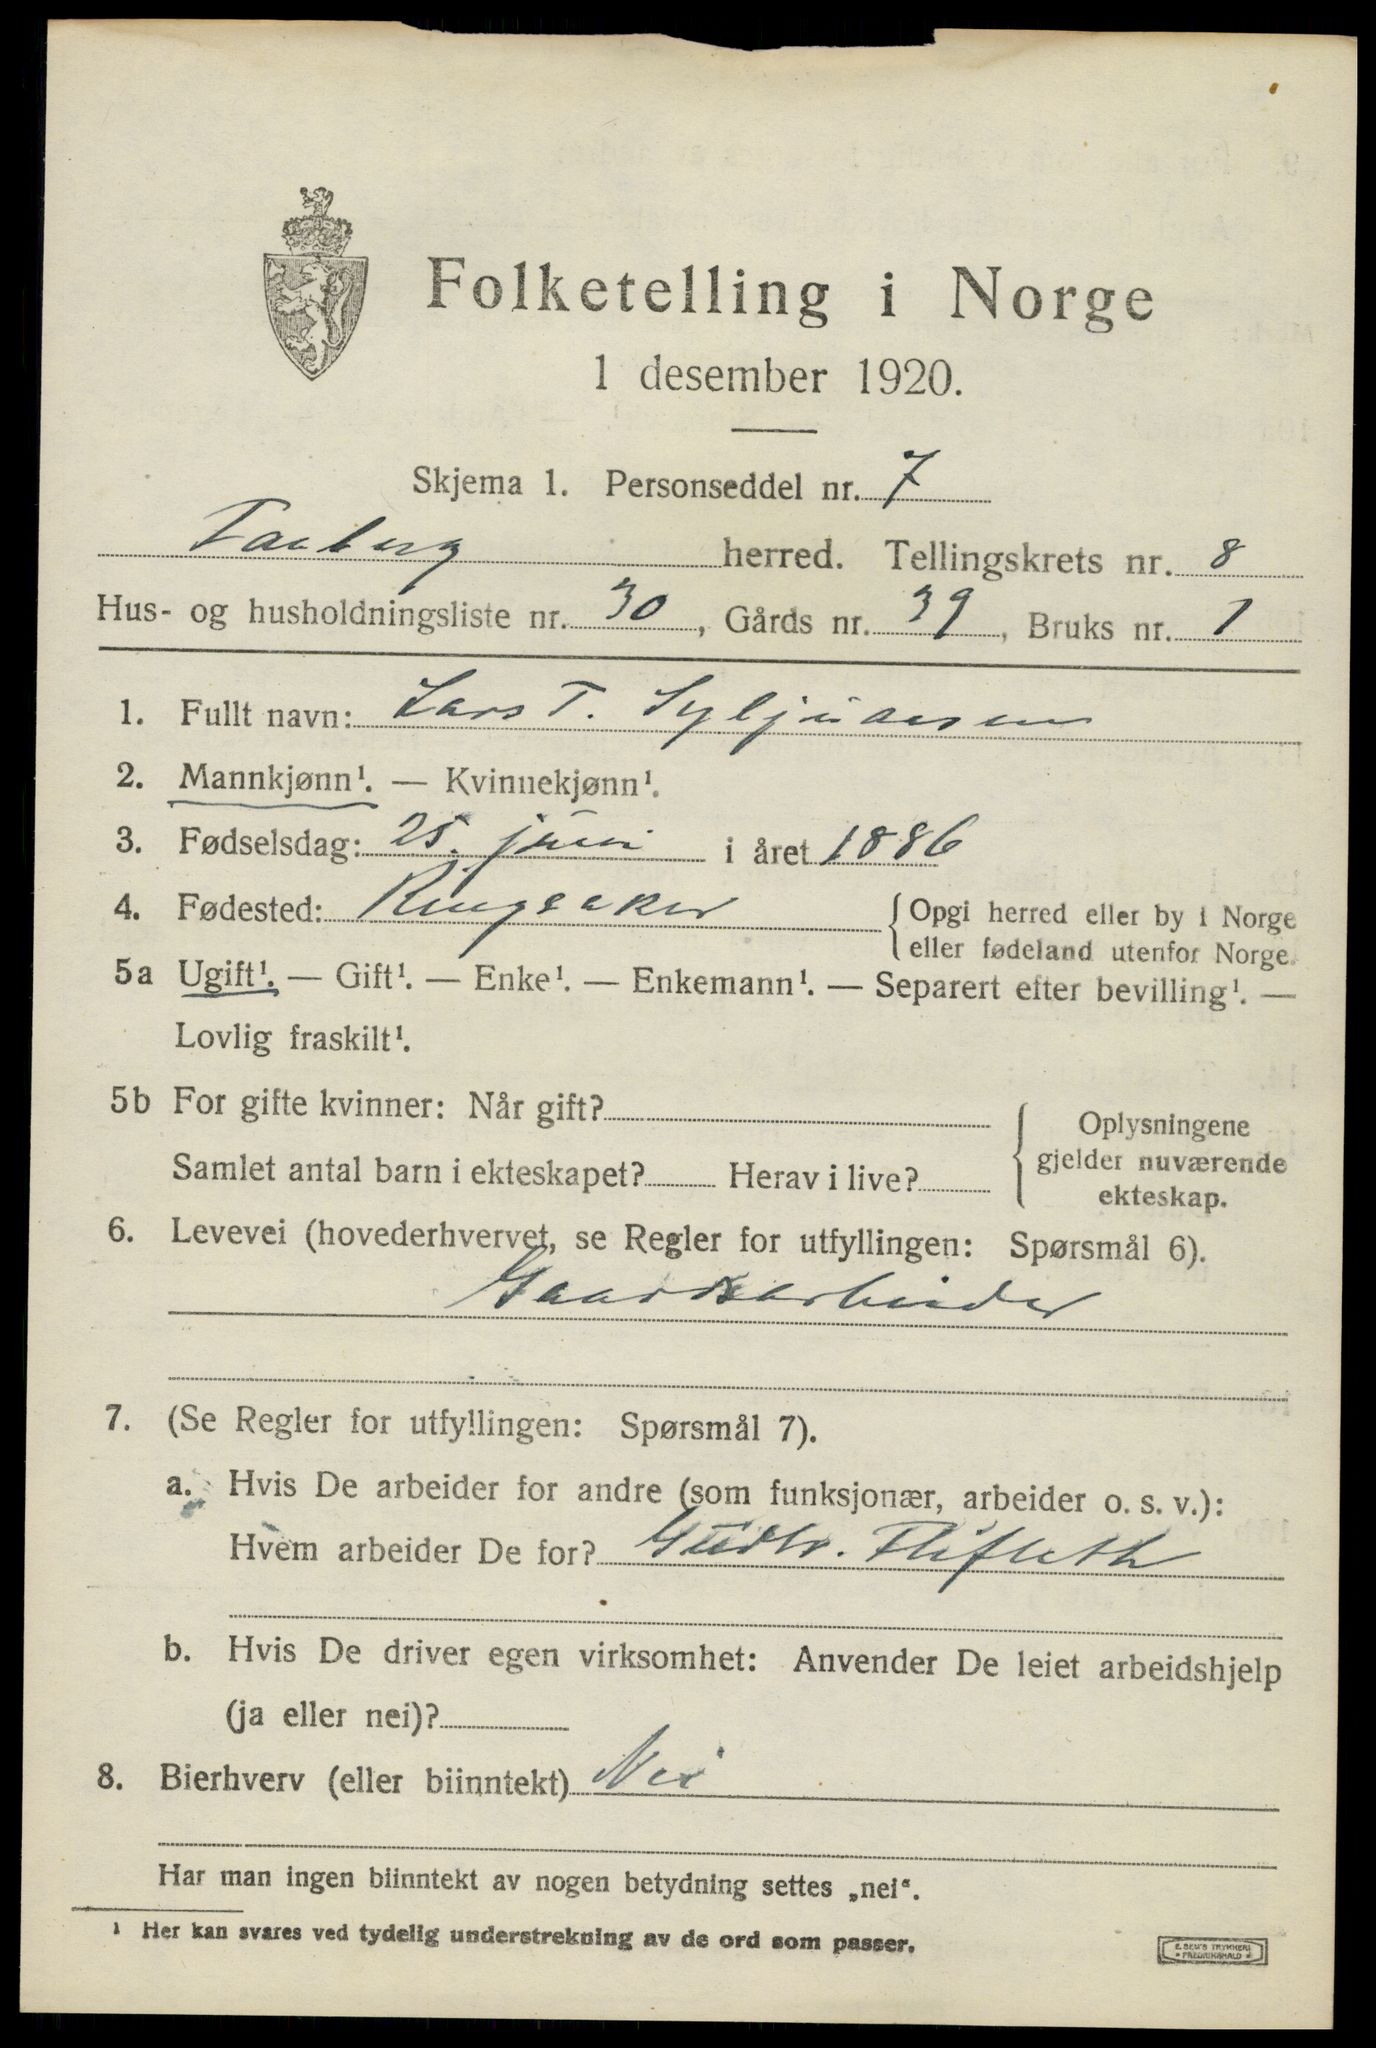 Folketelling i Norge
1 desember 1920.
Skjema 1. Personseddel nr. 7
Faaberg herred. Tellingskrets nr. 8
Hus- og husholdningsliste nr. 30, Gårds nr. 39, Bruks nr. 1
1. Fullt navn: Lars T. Syljuåsen
2. Mannkjønn¹. — Kvinnekjønn¹.
3. Fødselsdag: 25. juni i året 1886
4. Fødested: Ringsaker {Opgi herred eller by i Norge
eller fødeland utenfor Norge.
5a Ugift¹. — Gift¹. — Enke¹. — Enkemann¹. — Separert efter bevilling¹. —
Lovlig fraskilt¹.
5b For gifte kvinner: Når gift?
Samlet antal barn i ekteskapet? Herav i live?
Oplysningene
gjelder nuværende
ekteskap.
6. Levevei (hovederhvervet, se Regler for utfyllingen: Spørsmål 6).
Gaardsarbeider
7. (Se Regler for utfyllingen: Spørsmål 7).
a. Hvis De arbeider for andre (som funksjonær, arbeider o. s. v.):
Hvem arbeider De for? Gudbr. Flifleth
b. Hvis De driver egen virksomhet: Anvender De leiet arbeidshjelp
(ja eller nei)?
8. Bierhverv (eller biinntekt) Nei
Har man ingen biinntekt av nogen betydning settes „nei“.
¹ Her kan svares ved tydelig understrekning av de ord som passer.
E. SEM'S TRYKKERI
FREDRIKSHALD